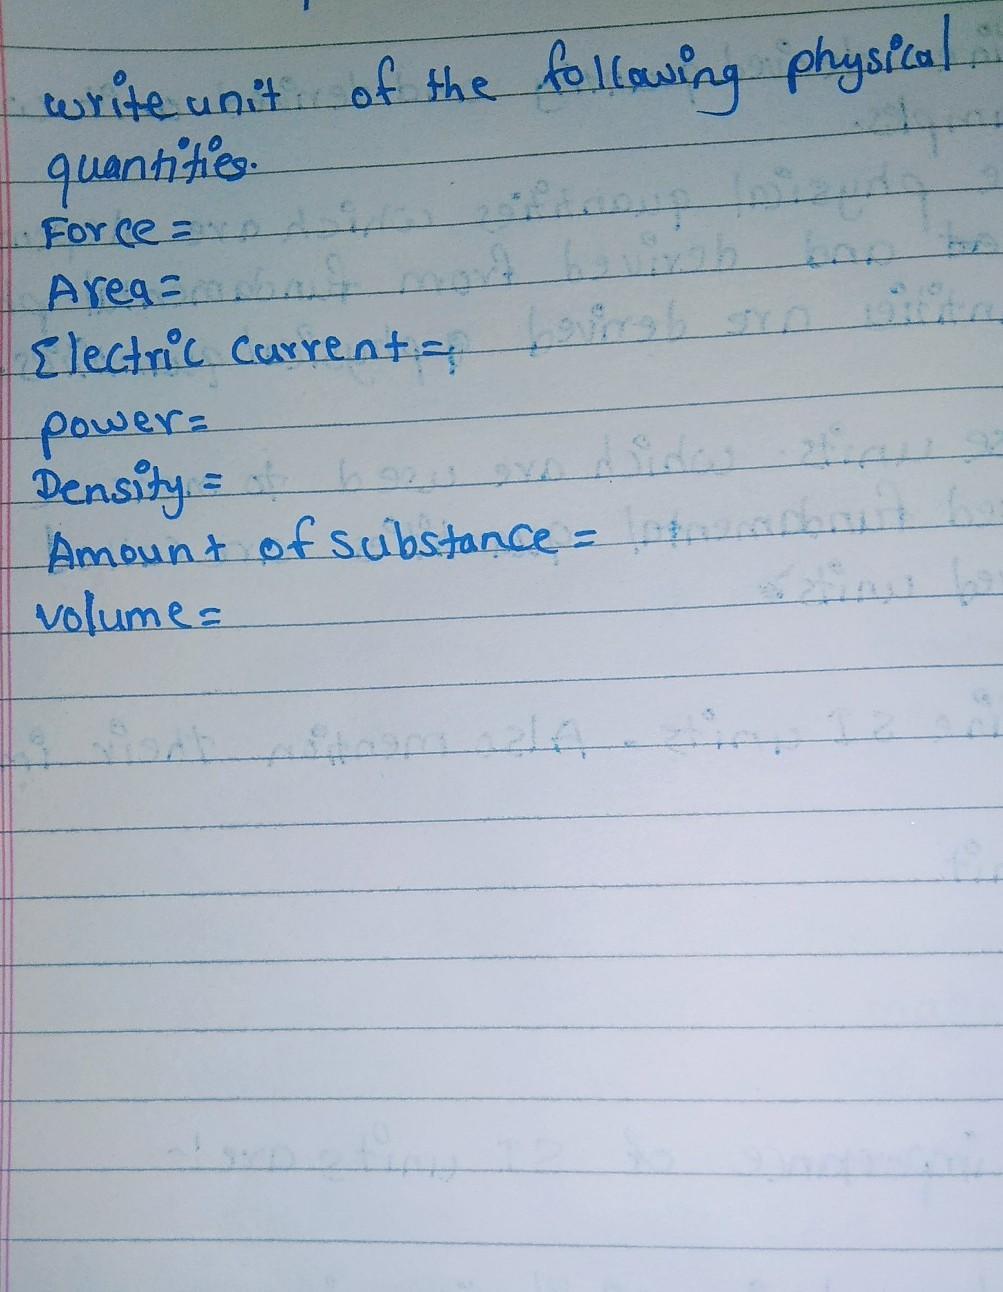 write unit of the following physical
quantities.
Force =
Area =
Electric current =
power =
Density =
Amount of substance =
volume =